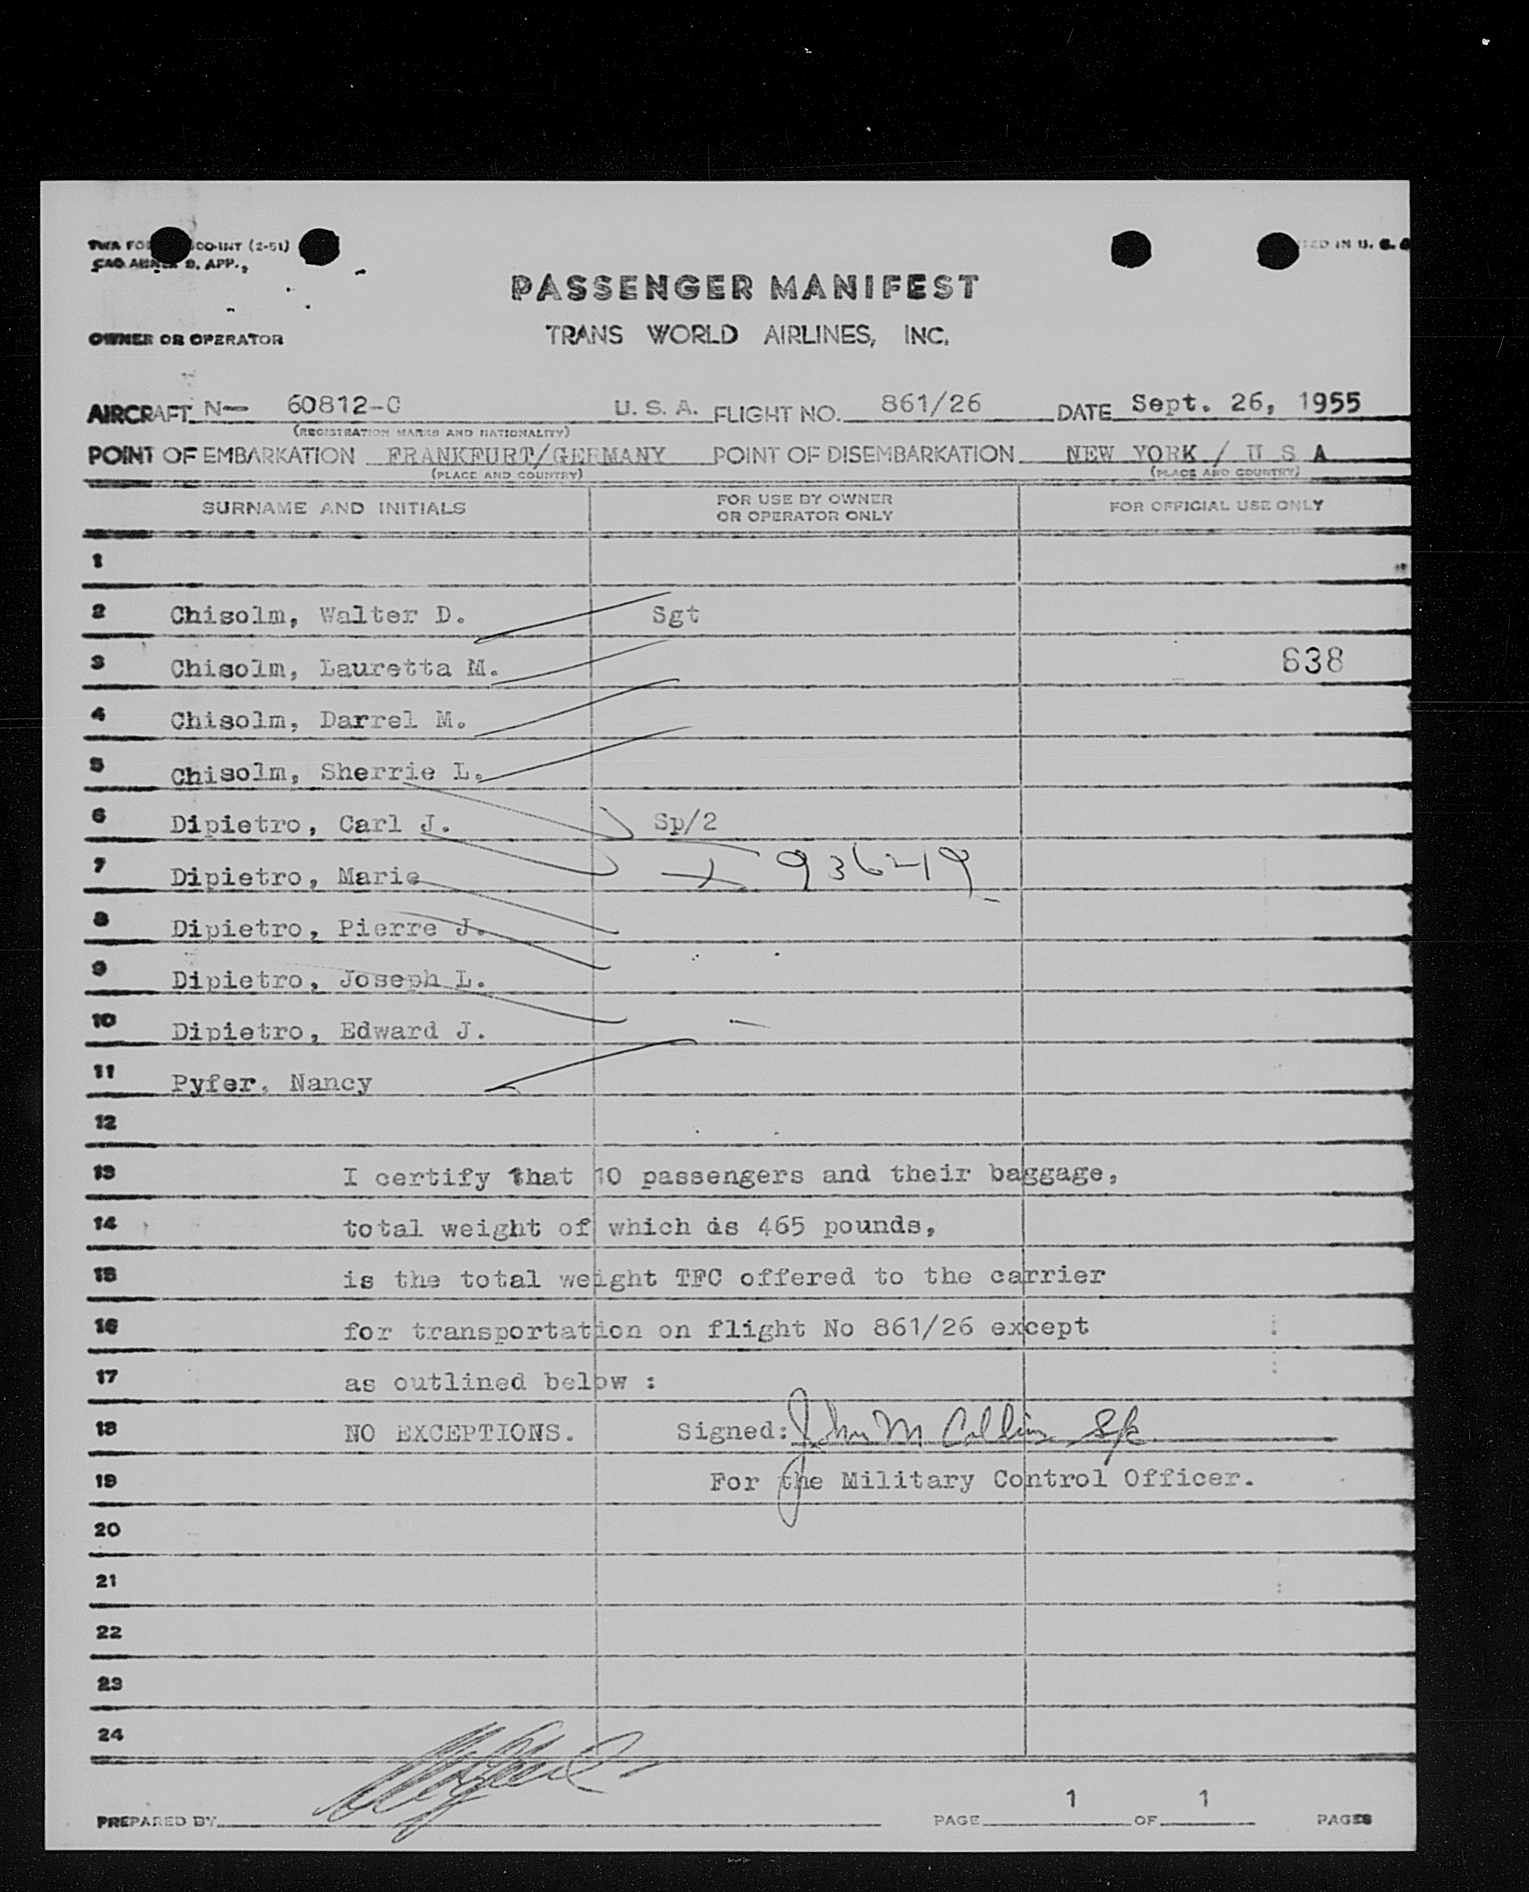 (2-51)
PASSENGER MANIFEST
OWNER OR OPERATOR
TRANS WORLD AIRLINES, INC.
AIRCRAFT N— 60812-C U. S. A. FLIGHT NO. 861/26 DATE Sept. 26, 1955
(REGISTRATION MARKS AND NATIONALITY)
POINT OF EMBARKATION FRANKFURT/GERMANY POINT OF DISEMBARKATION NEW YORK / U S A
(PLACE AND COUNTRY) (PLACE AND COUNTRY)
SURNAME AND INITIALS FOR USE BY OWNER OR OPERATOR ONLY FOR OFFICIAL USE ONLY
1
2 Chisolm, Walter D. Sgt
3 Chisolm, Lauretta M. 638
4 Chisolm, Darrel M.
5 Chisolm, Sherrie L.
6 Dipietro, Carl J. Sp/2
7 Dipietro, Marie
8 Dipietro, Pierre J.
9 Dipietro, Joseph L.
10 Dipietro, Edward J.
11 Pyfer, Nancy
12
13 I certify that 10 passengers and their baggage,
14 total weight of which is 465 pounds,
15 is the total weight TFC offered to the carrier
16 for transportation on flight No 861/26 except
17 as outlined below :
18 NO EXCEPTIONS. Signed: John M Collins
19 For the Military Control Officer.
20
21
22
23
24
PREPARED BY PAGE 1 OF 1 PAGES